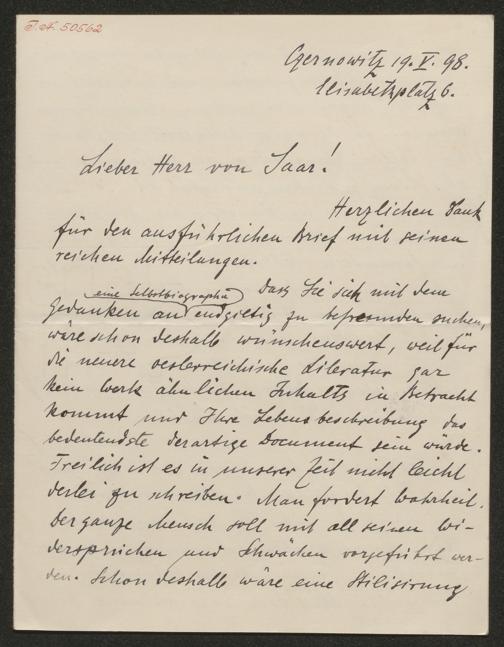 I.N. 50562
Czernowitz 19. V. 98.
Elisabethplatz 6.
Lieber Herr von Saar!
Herzlichen Dank
für den ausführlichen Brief mit seinen
reichen Mitteilungen.
Dass Sie sich mit dem
eine Selbstbiographie
Gedanken an endgiltig zu befreunden suchen,
wäre schon deshalb wünschenswert, weil für
die neuere oesterreichische Literatur gar
kein Werk ähnlichen Inhalts in Betracht
kommt und Ihre Lebensbeschreibung das
bedeutendste derartige Document sein würde.
Freilich ist es in unserer Zeit nicht leicht
derlei zu schreiben. Man fordert Wahrheit.
Der ganze Mensch soll mit all seinen Wi-
dersprüchen und Schwächen vorgeführt wer-
den. Schon deshalb wäre eine Stilisirung